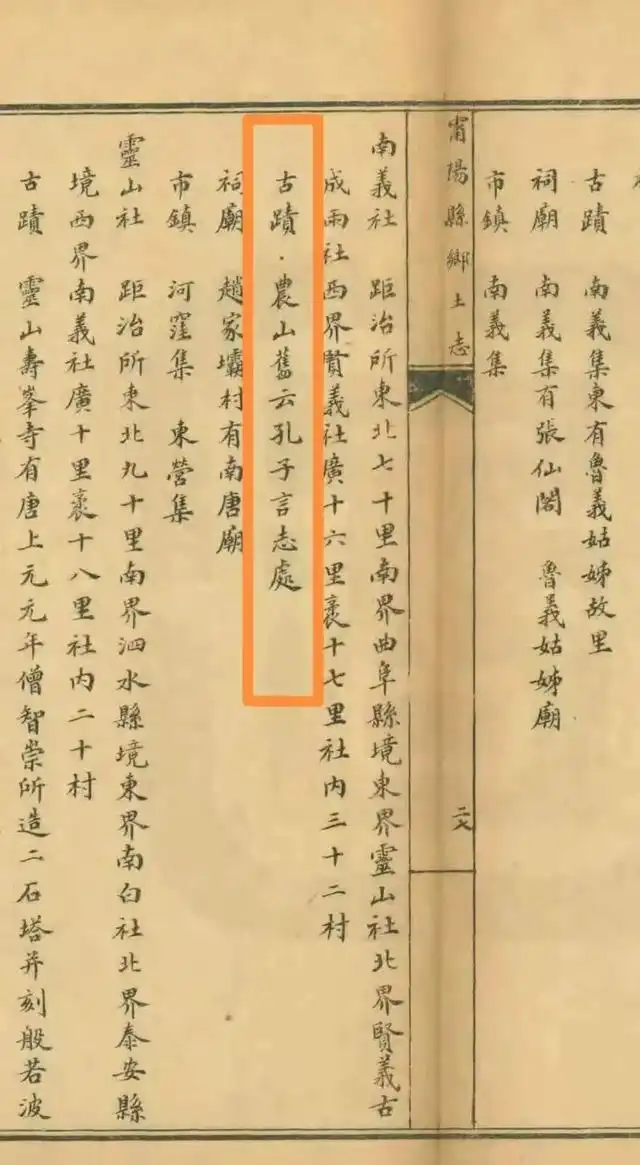 古蹟 南義集東有魯義姑姊故里
祠廟 南義集有張仙閣 魯義姑姊廟
市鎮 南義集
甯陽縣鄉土志
南義社 距治所東北七十里南界曲阜縣境東界靈山社北界賢義古
成兩社西界賢義社廣十六里袤十七里社内三十二村
古蹟·農山舊云孔子言志處
祠廟 趙家壩村有南唐廟
市鎮 河窪集 東營集
靈山社 距治所東北九十里南界泗水縣境東界南白社北界泰安縣
境西界南義社廣十里袤十八里社内二十村
古蹟 靈山壽峯寺有唐上元元年僧智崇所造二石塔并刻般若波